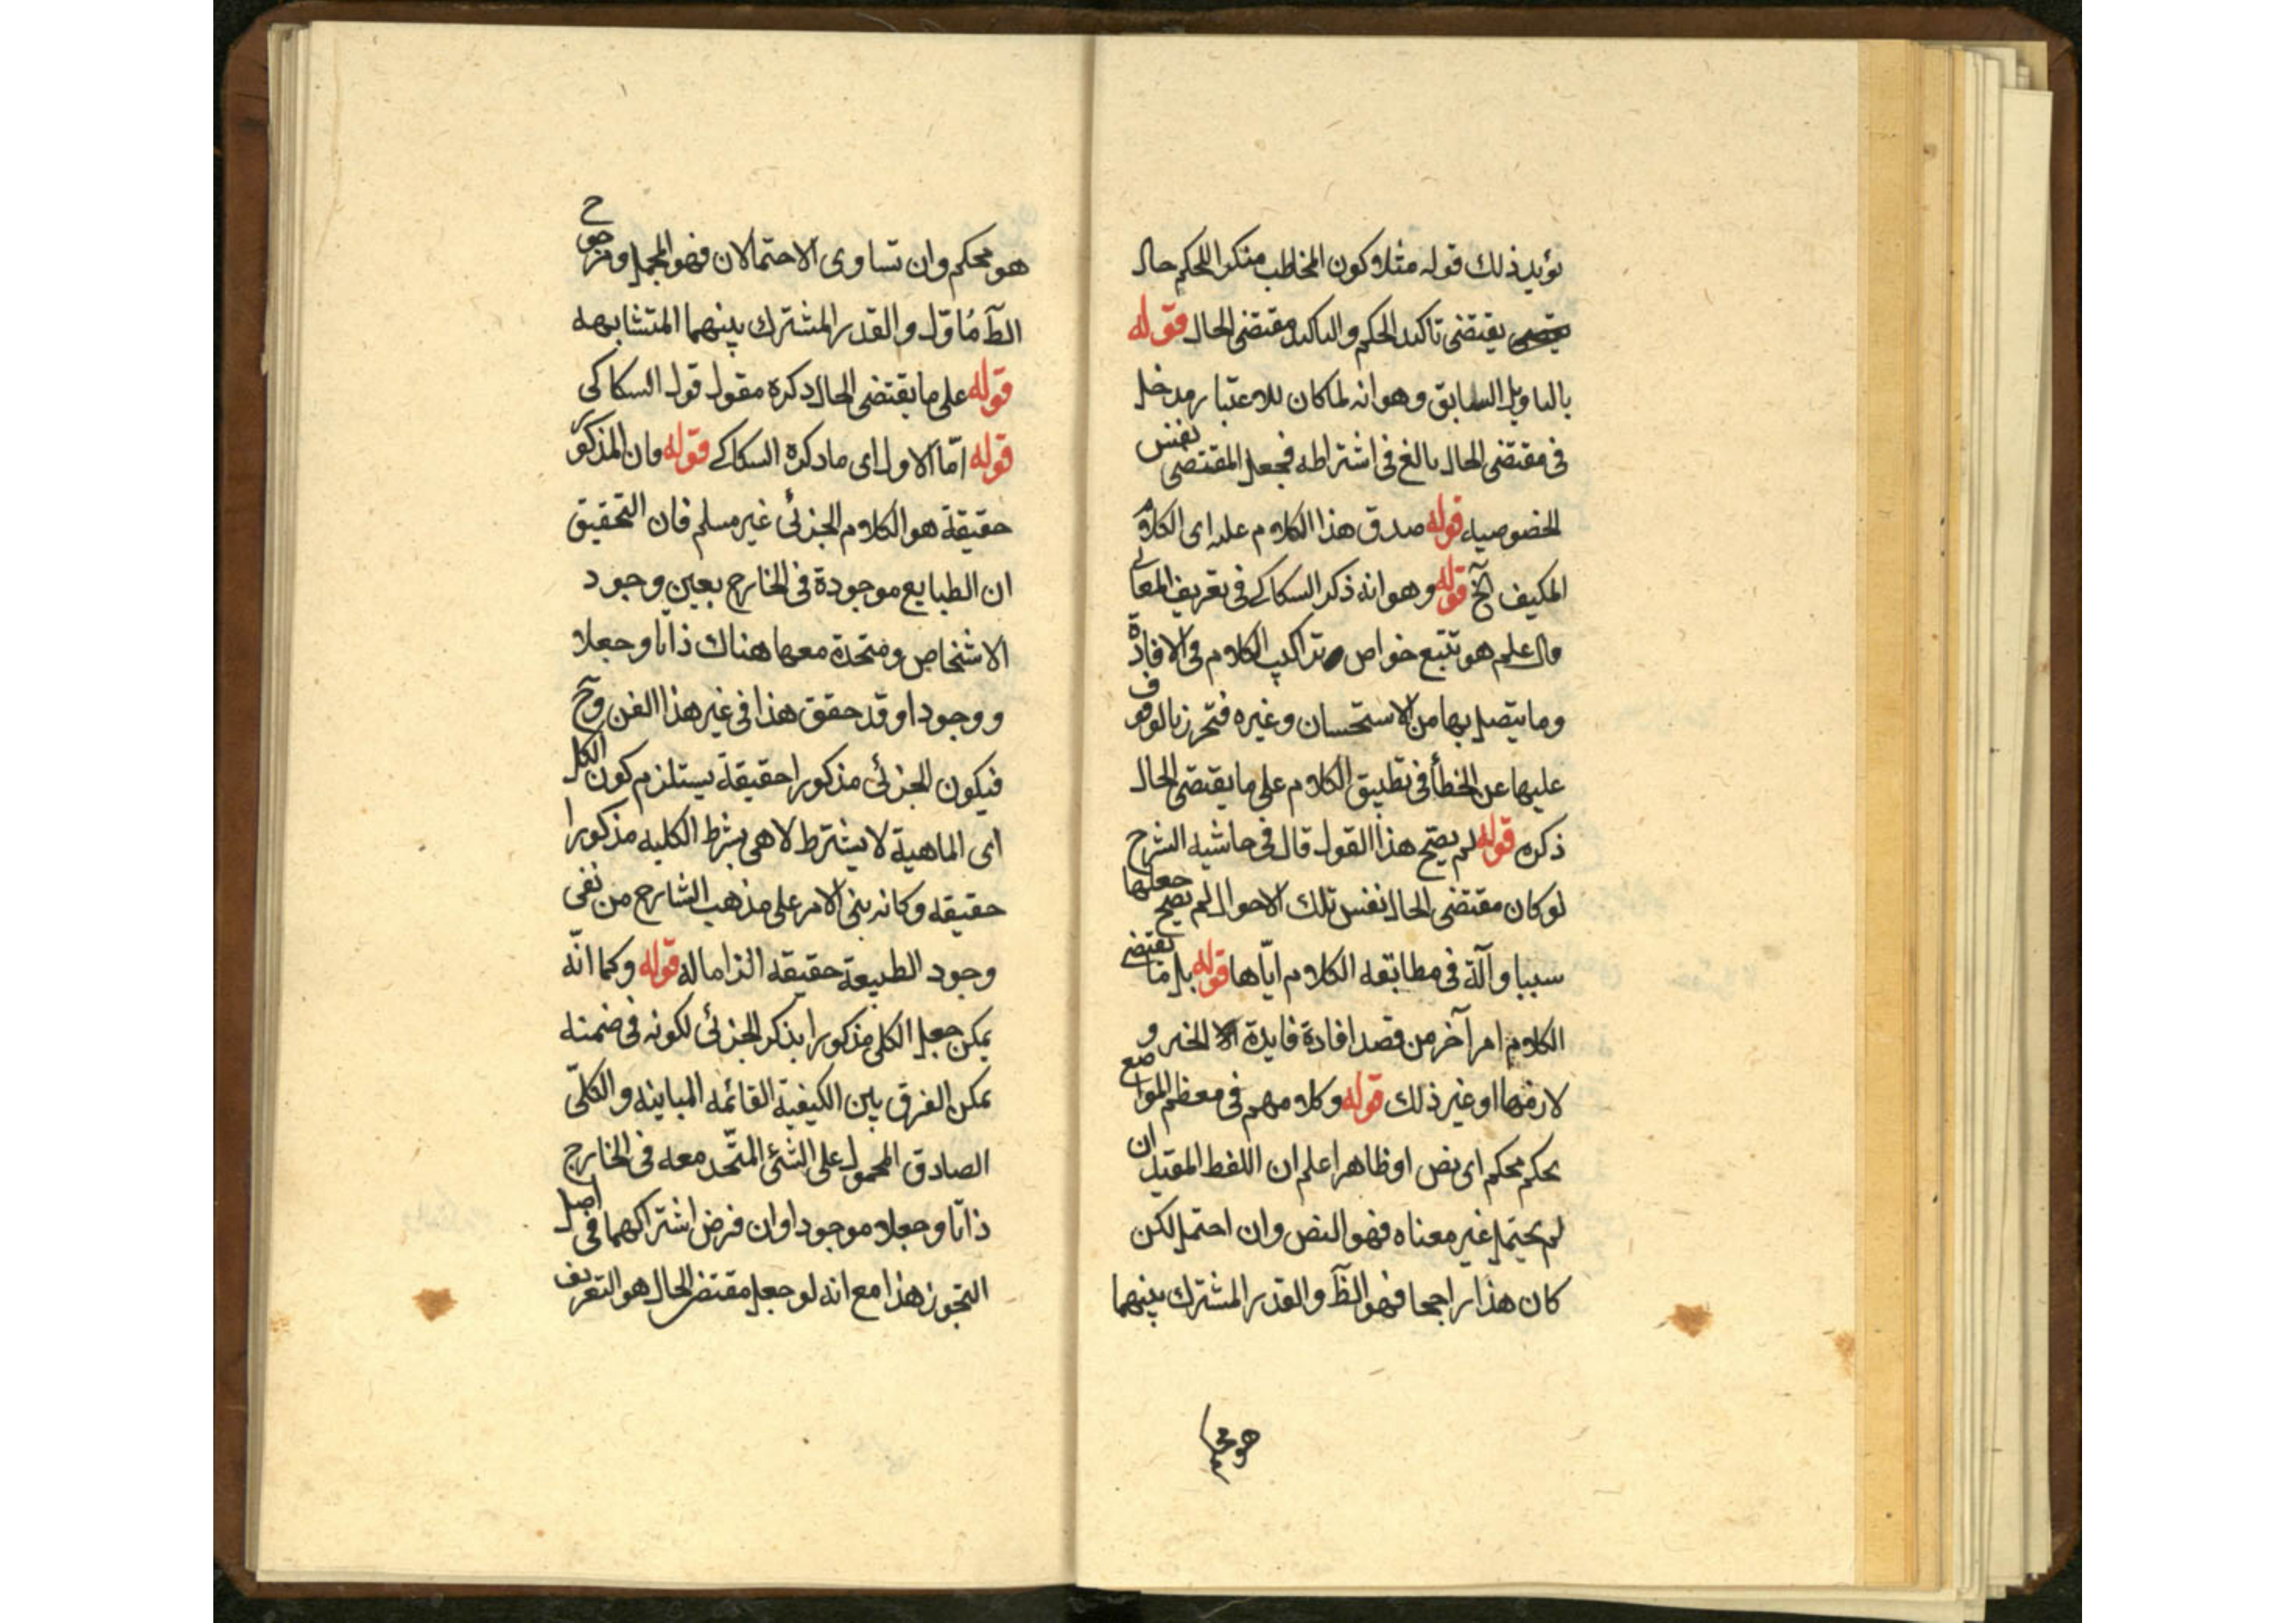 يؤيد ذلك قوله مثلا وكون المخاطب منكرا للحكم حال
يقتضى تاكيد الحكم والتاكيد مقتضى الحال قوله
بالتاويل السابق وهو انه لما كان للاعتبار مدخل
فى مقتضى الحال بالغ فى اشتراطه فجعل المقتضى نفس
الخصوصيات قوله صدق هذا الكلام عليه اى الكلام
المكيف الخ قوله وهو انه ذكر السكاكى فى تعريف المعانى
علم هو تتبع خواص تراكيب الكلام فى الافادة
وما يتصل بها من الاستحسان وغيره فتحرز بالوقوف
عليها عن الخطأ فى تطبيق الكلام على ما يقتضى الحال
ذكره قوله لم يصح هذا القول قال فى حاشية الشرح
لو كان مقتضى الحال نفس تلك الاحوال لم يصح جعلها
سببا وآلة فى مطابقة الكلام اياها قوله بل ما يقتضى
الكلام امر آخر من قصد افادة فايدة الخبر و
لازمها او غير ذلك قوله وكلامهم فى معظم المواضع
يحكم محكم اى نص او ظاهر اعلم ان اللفظ المقيد ان
لم يحتمل غير معناه فهو النص وان احتمل لكن
كان هذا راجحا فهو الظ والقدر المشترك بينهما
هو محكم
هو محكم وان تساوى الاحتمالان فهو المجمل ومرجوح
الظ مأوّل والقدر المشترك بينهما المتشابهه
قوله على ما يقتضى الحال ذكره مقول قول السكاكى
قوله امّا الاول اى ما ذكره السكاكى قوله وان المذكور
حقيقة هو الكلام الجزئى غير مسلم فان التحقيق
ان الطبايع موجودة فى الخارج بعين وجود
الاشخاص ومتحدة معها هناك ذاتا وجعلا
ووجودا وقد حقق هذا فى غير هذا الفن وح
فيكون الجزئى مذكورا حقيقة يستلزم كون الكلى
اى الماهية لا بشرط لا هى بشرط الكلية مذكورا
حقيقه وكانه بنى الامر على مذهب الشارح من نفى
وجود الطبيعة حقيقه الزاما له قوله وكما انّه
يمكن جعل الكلى مذكورا بذكر الجزئى لكونه فى ضمنه
يمكن الفرق بين الكيفية القائمه المباينه والكلّى
الصادق المحمول على الشئ المتّحد معه فى الخارج
ذاتا وجعلا موجودا وان فرض اشتراكهما فى اصل
التجوز هذا مع انه لو جعل مقتضى الحال هو التعريف